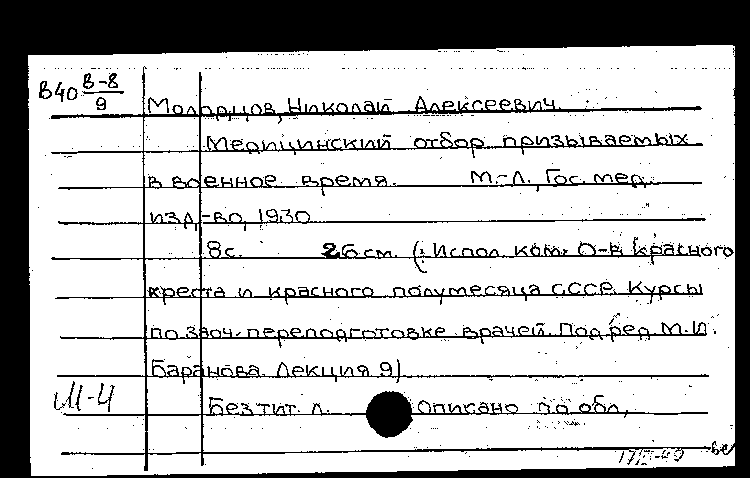 В40 В-8/9
Молодцов, Николай Алексеевич.
Медицинский отбор призываемых
в военное время. М.-Л., Гос. мед.
изд-во, 1930
8с. 26см. (: Испол. ком. О-в Красного
креста и красного полумесяца СССР. Курсы
по заоч. переподготовке врачей. Под ред. М.И.
Баранова. Лекция 9)
Без тит. л. Описано по обл,
Ш-4